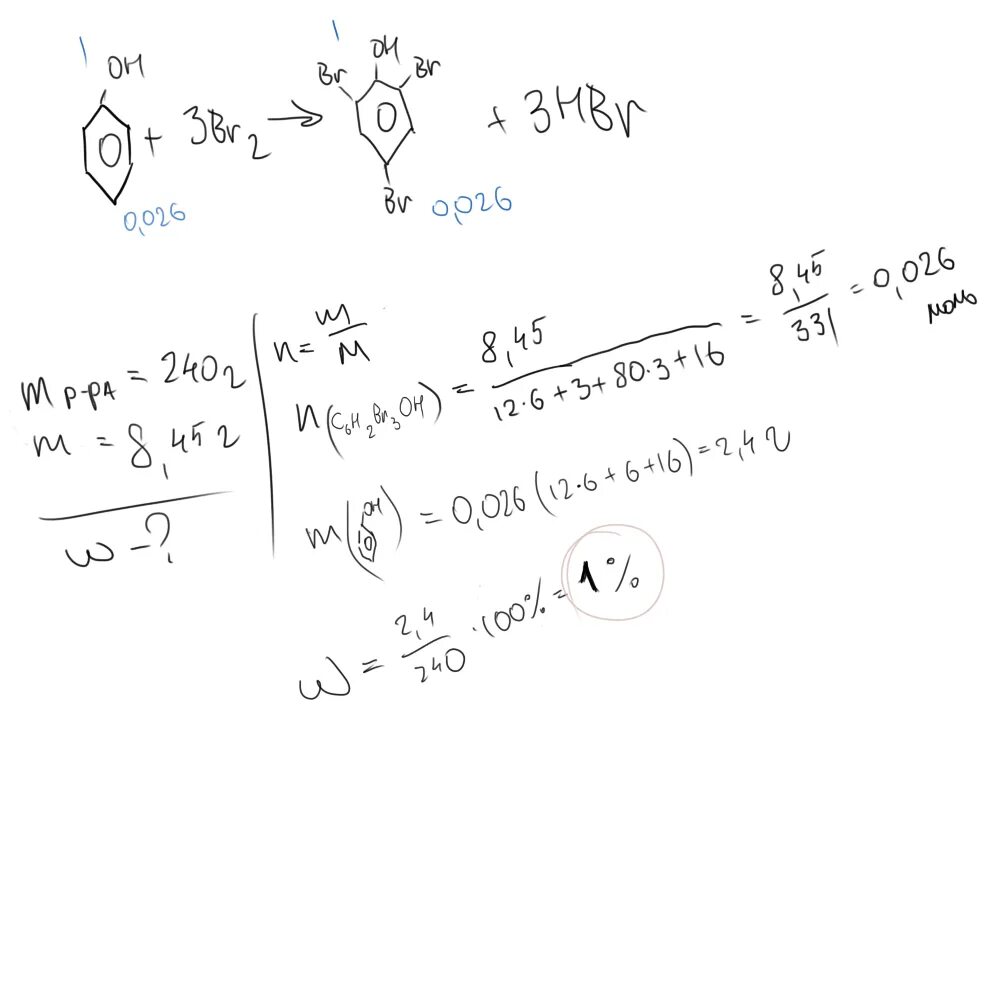 1 1
OH + 3Br2 → Br OH Br Br + 3HBr
0,026 0,026
m р-ра = 240 г
m = 8,45 г
ω - ?
n = m/M
n(C6H2Br3OH) = 8,45/(12·6+3+80·3+16) = 8,45/331 = 0,026 моль
m(OH) = 0,026(12·6+6+16) = 2,4 г
ω = 2,4/240 · 100% = 1%